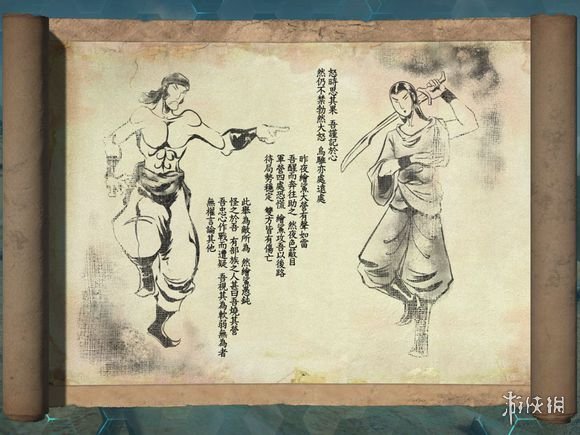 怒時思其果 吾謹記於心
然仍不禁勃然大怒 烏騅亦處遠處
昨夜繪鯊大營有聲如雷
吾醒而奔往助之 然夜色蔽目
軍營四處恐慌 繪鯊攻吾以後路
待局勢穩定 雙方皆有傷亡
此舉為敵所為 然繪鯊愚鈍
怪之於吾 有部族之人甚曰吾燒其營
吾忠心作戰而遭疑 吾視其為軟弱無為者
無權言論其他
游侠網